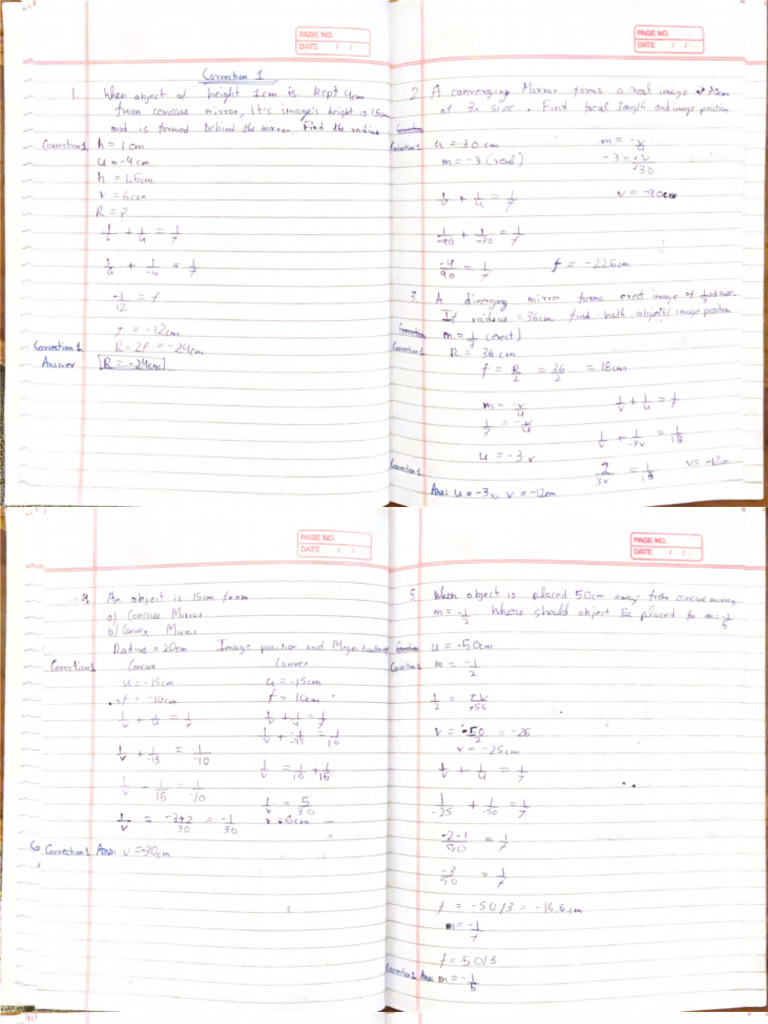 PAGE NO.
DATE / /
Correction 1
1. When object of height 1cm is kept 4cm
from concave mirror, It's image's height is 1.5cm
and is formed behind the mirror. Find the radius
Correction 1 h = 1cm
u = -4cm
h = 1.5cm
v = 6cm
R = ?
1/v + 1/u = 1/f
1/6 + 1/-4 = 1/f
-1/12 = f
f = -12cm
Correction 1 R = 2f = -24cm
Answer R = -24cm
PAGE NO.
DATE / /
2 A converging Mirror forms a real image at 30cm
of 3x size. Find focal length and image position
Correction 1 u = -30cm m = -v/u
m = -3 (real) -3 = +v/+30
v = -90cm
1/v + 1/u = 1/f
1/-90 + 1/-30 = 1/f
-4/90 = 1/f f = -22.5cm
3. A diverging mirror forms erect image of 1/3rd size.
If radius = 36cm, find both object/image position
m = 1/3 (erect)
Correction 1 R = 36cm
f = R/2 = 36/2 = 18cm
m = -v/u 1/v + 1/u = 1/f
1/3 = -v/u 1/v + 1/-3v = 1/18
u = -3v
Correction 1 2/3v = 1/18 v = -12cm
Ans: u = -3v, v = -12cm
PAGE NO.
DATE / /
4. An object is 15cm from
a) Concave Mirror
b) Convex Mirror
Radius = 20cm Image position and Magnification
Correction 1 Concave Convex
u = -15cm u = -15cm
f = -10cm f = 10cm
1/v + 1/u = 1/f 1/v + 1/u = 1/f
1/v + 1/-15 = 1/-10 1/v + 1/-15 = 1/10
1/v - 1/15 - 1/-10 1/v = 1/10 + 1/15
1/v = -3+2/30 = -1/30 1/v = 5/30
v = 6cm
Correction 1 Ans: v = -30cm
PAGE NO.
DATE / /
5. When object is placed 50cm away from concave mirror,
m = -1/2. Where should object be placed for m = -1/5
u = -50cm
Correction 1 m = -1/2
1/2 = +v/+50
v = -50/2 = -25
v = -25cm
1/v + 1/u = 1/f
1/-25 + 1/-50 = 1/f
-2-1/50 = 1/f
-3/50 = 1/f
f = -50/3 = -16.6cm
m = -1/f
f = -50/3
Correction 1 Ans: m = -1/5